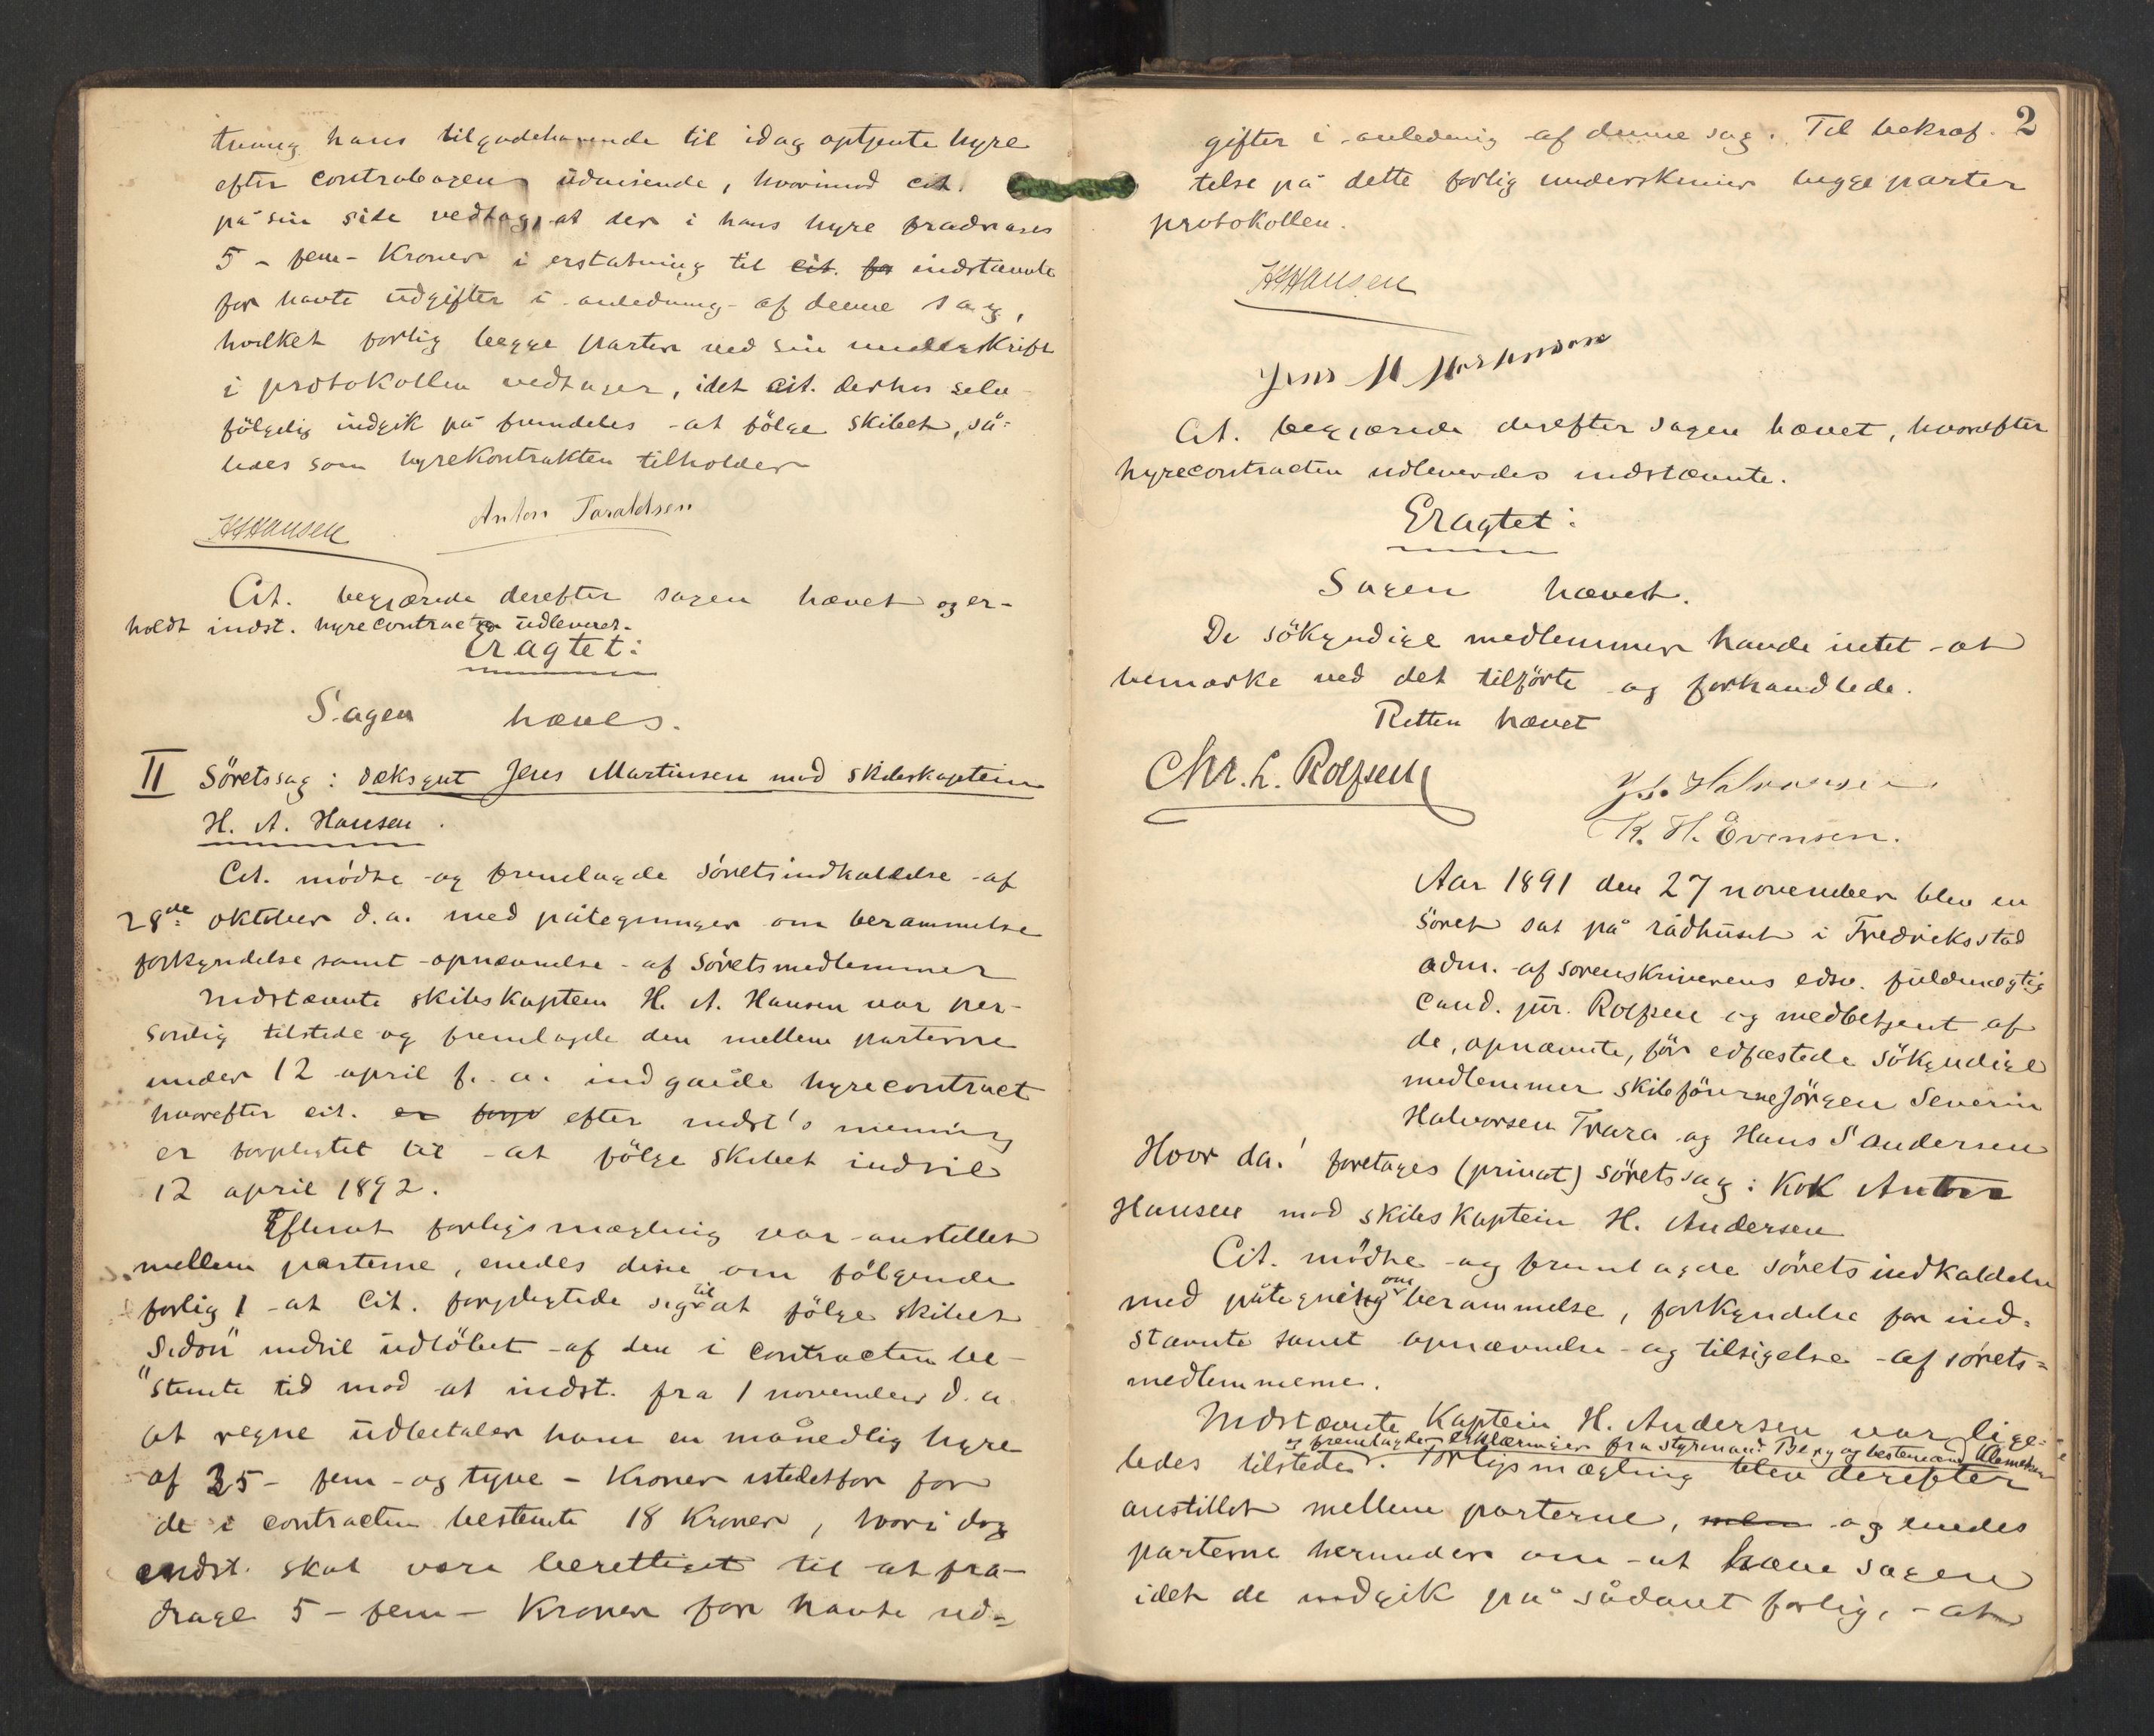 hans tilgodehavende til idag optjente hyre
efter contrabogens udvisende, hvorimod cit.
på sin side vedtog, at der i hans hyre fradrages
5 - fem - Kroner i erstatning til cit. for indstævnte
for havte udgifter i anledning af denne sag,
hvilket forlig begge parter ved sin underskrift
i protokollen vedtager, idet cit. derhos selv-
følgelig indgik på fremdeles at følge skibet, så-
ledes som hyrekontrakten tilholder
HAHansen Anton Taraldsen
Cit. begjærede derefter sagen hævet og er-
holdt indst. hyrecontracten udleveret.
Eragtet:
Sagen hæves.
II Söretssag: dæksgut Jens Martinsen mod skibskaptein
H. A. Hansen.
Cit. mödte og fremlagde söretsindkaldelse af
28de oktober d.a. med påtegninger om berammelse
forkyndelse samt opnævnelse af söretsmedlemmer
Indstævnte skibskaptein H. A. Hansen var per-
sonlig tilstede og fremlagde den mellem parterne
under 12 april f. a. indgåede hyrecontract
hvorefter cit. er forpl efter indst's mening
er forpligtet til at fölge skibet indtil
12 april 1892.
Efterat forligsmægling var anstillet
mellem parterne, enedes disse om fölgende
forlig! at cit. forpligtede sig til at fölge skibet
"Sidon" indtil udlöbet af den i contracten be-
stemte tid mod at indst. fra 1 november d. a.
at regne udbetaler ham en månedlig hyre
af 25 - fem - og tyve - Kroner istedetfor for
de i contracten bestemte 18 Kroner, hvori dog
indst. skal være berettiget til at fra-
drage 5 - fem - Kroner for havte ud-
2
gifter i anledning af denne sag. Til bekræf-
telse på dette forlig underskriver begge parter
protokollen.
HAHansen
Jens M Martinsen
Cit. begjærede derefter sagen hævet, hvorefter
hyrecontracten udleveredes indstævnte.
Eragtet:
Sagen hævet.
De sökyndige medlemmer havde intet at
bemærke ved det tilförte og forhandlede.
Retten hævet
Chr. L. Rolfsen
J. S. Halvorsen
K. H. Evensen.
Aar 1891 den 27 november blev en
söret sat på rådhuset i Fredriksstad
adm. af sorenskriverens edsv. fuldmægtig
cand. jur. Rolfsen og medbetjent af
de, opnævnte, för edfæstede sökyndige
medlemmer skibsförerne Jörgen Severin
Halvorsen Trara og Hans S Andersen
Hvor da! foretages (privat) söretssag: Kok Anton
Hansen mod skibskaptein H. Andersen
Cit. mödte og fremlagde söretsindkaldelse
med påtegning om berammelse, forkyndelse for ind-
stævnte samt opnævnelse og tilsigelse af sörets-
medlemmerne.
Indstævnte Kaptein H. Andersen var lige-
og fremlagde erklæringer fra styrmand Berg og bestemand Klemetsen
ledes tilstede. Forligsmægling blev derefter
anstillet mellem parterne, men og enedes
parterne herunder om at hæve sagen
idet de indgik på sådant forlig, at